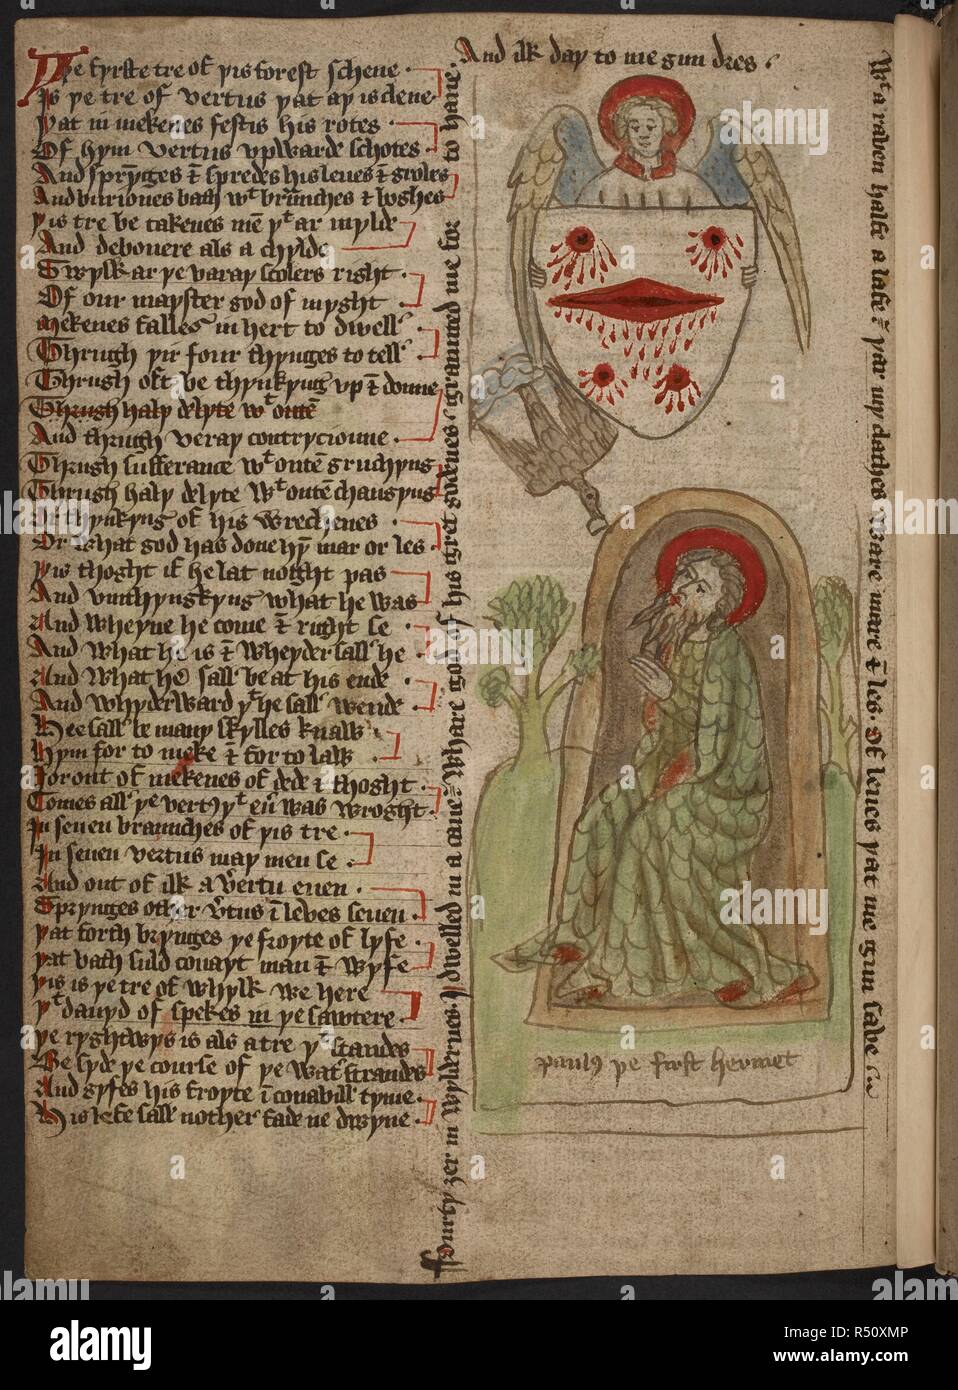 And ilk day to me gun dres
Þe fyrste tre of yis forest schene
Is ye tre of vertus yat ay is clene
Yat in mekenes festis his rotes
Of hym vertus vpwarde schotes
And sprynges & spredes his leues & growes
And buriones bath wt braunches & boghes
Yis tre be takenes men yt ar mylde
And debonere als a chylde
Swylk ar ye varay scolers right
Of our mayster god of myght
Mekenes falles in hert to dwell
Thrugh yir four thynges to tell
Thrugh oft be thynkyng vp & donne
Thrugh haly delyte wt outen
And thrugh veray contrycioune
Thrugh sufferance wt outen gruchyng
Thrugh haly delyte wt outen chaungyng
Of thynkyng of his wrechenes
Or what god has done hym mar or les
Yis thoght if he lat noght pas
And vmthynkyng what he was
And wheyne he come & right se
And what he is & wheyder sall he
And what he sall be at his ende
And whyderward yt he sall wende
Hee sall be many skylles knaw
Hym for to meke & for to law
For out of mekenes of dede & thoght
Comes all ye vertus yt euer was wroght
In seuen braunches of yis tre
In seuen vertus may men se
And out of ilk a vertu euen
Sprynges other vertus & leues seuen
Yat forth brynges ye froyte of lyfe
Yat bath suld couayt man & wyfe
Yis is ye tre of whylk we here
Yt dauyd of spekes in ye sawtere
Ye ryghtwys is als a tre yt standes
Be syde ye course of ye water strandes
And gyfes his froyte in couabill tyme
His lefe sall nother fade ne dwyne
Fourty yer in wyldernes I dwelled in a caue Whare god of his gret godenes graunted me for to hafe
Wt a rauen halfe a lafe & yar my clathes ware mare & les Of leues yat me gun saue
Paulus ye first hermet
alamy
Image ID: R50XMP
www.alamy.com